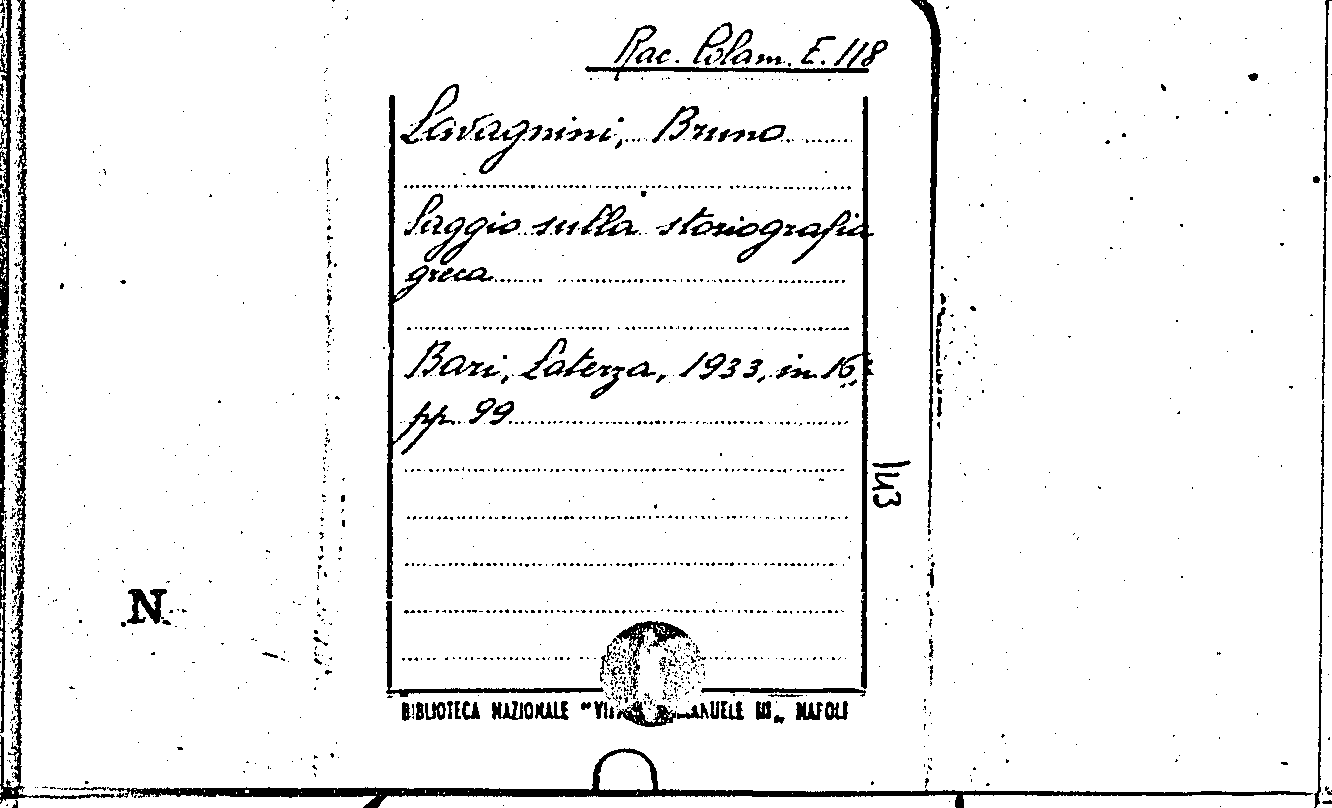 Rac. Colam. E. 118
Lavagnini, Bruno
Saggio sulla storiografia
greca
Bari, Laterza, 1933, in 16°
pp. 99
143
N
BIBLIOTECA NAZIONALE "VITTORIO EMANUELE III„ NAPOLI